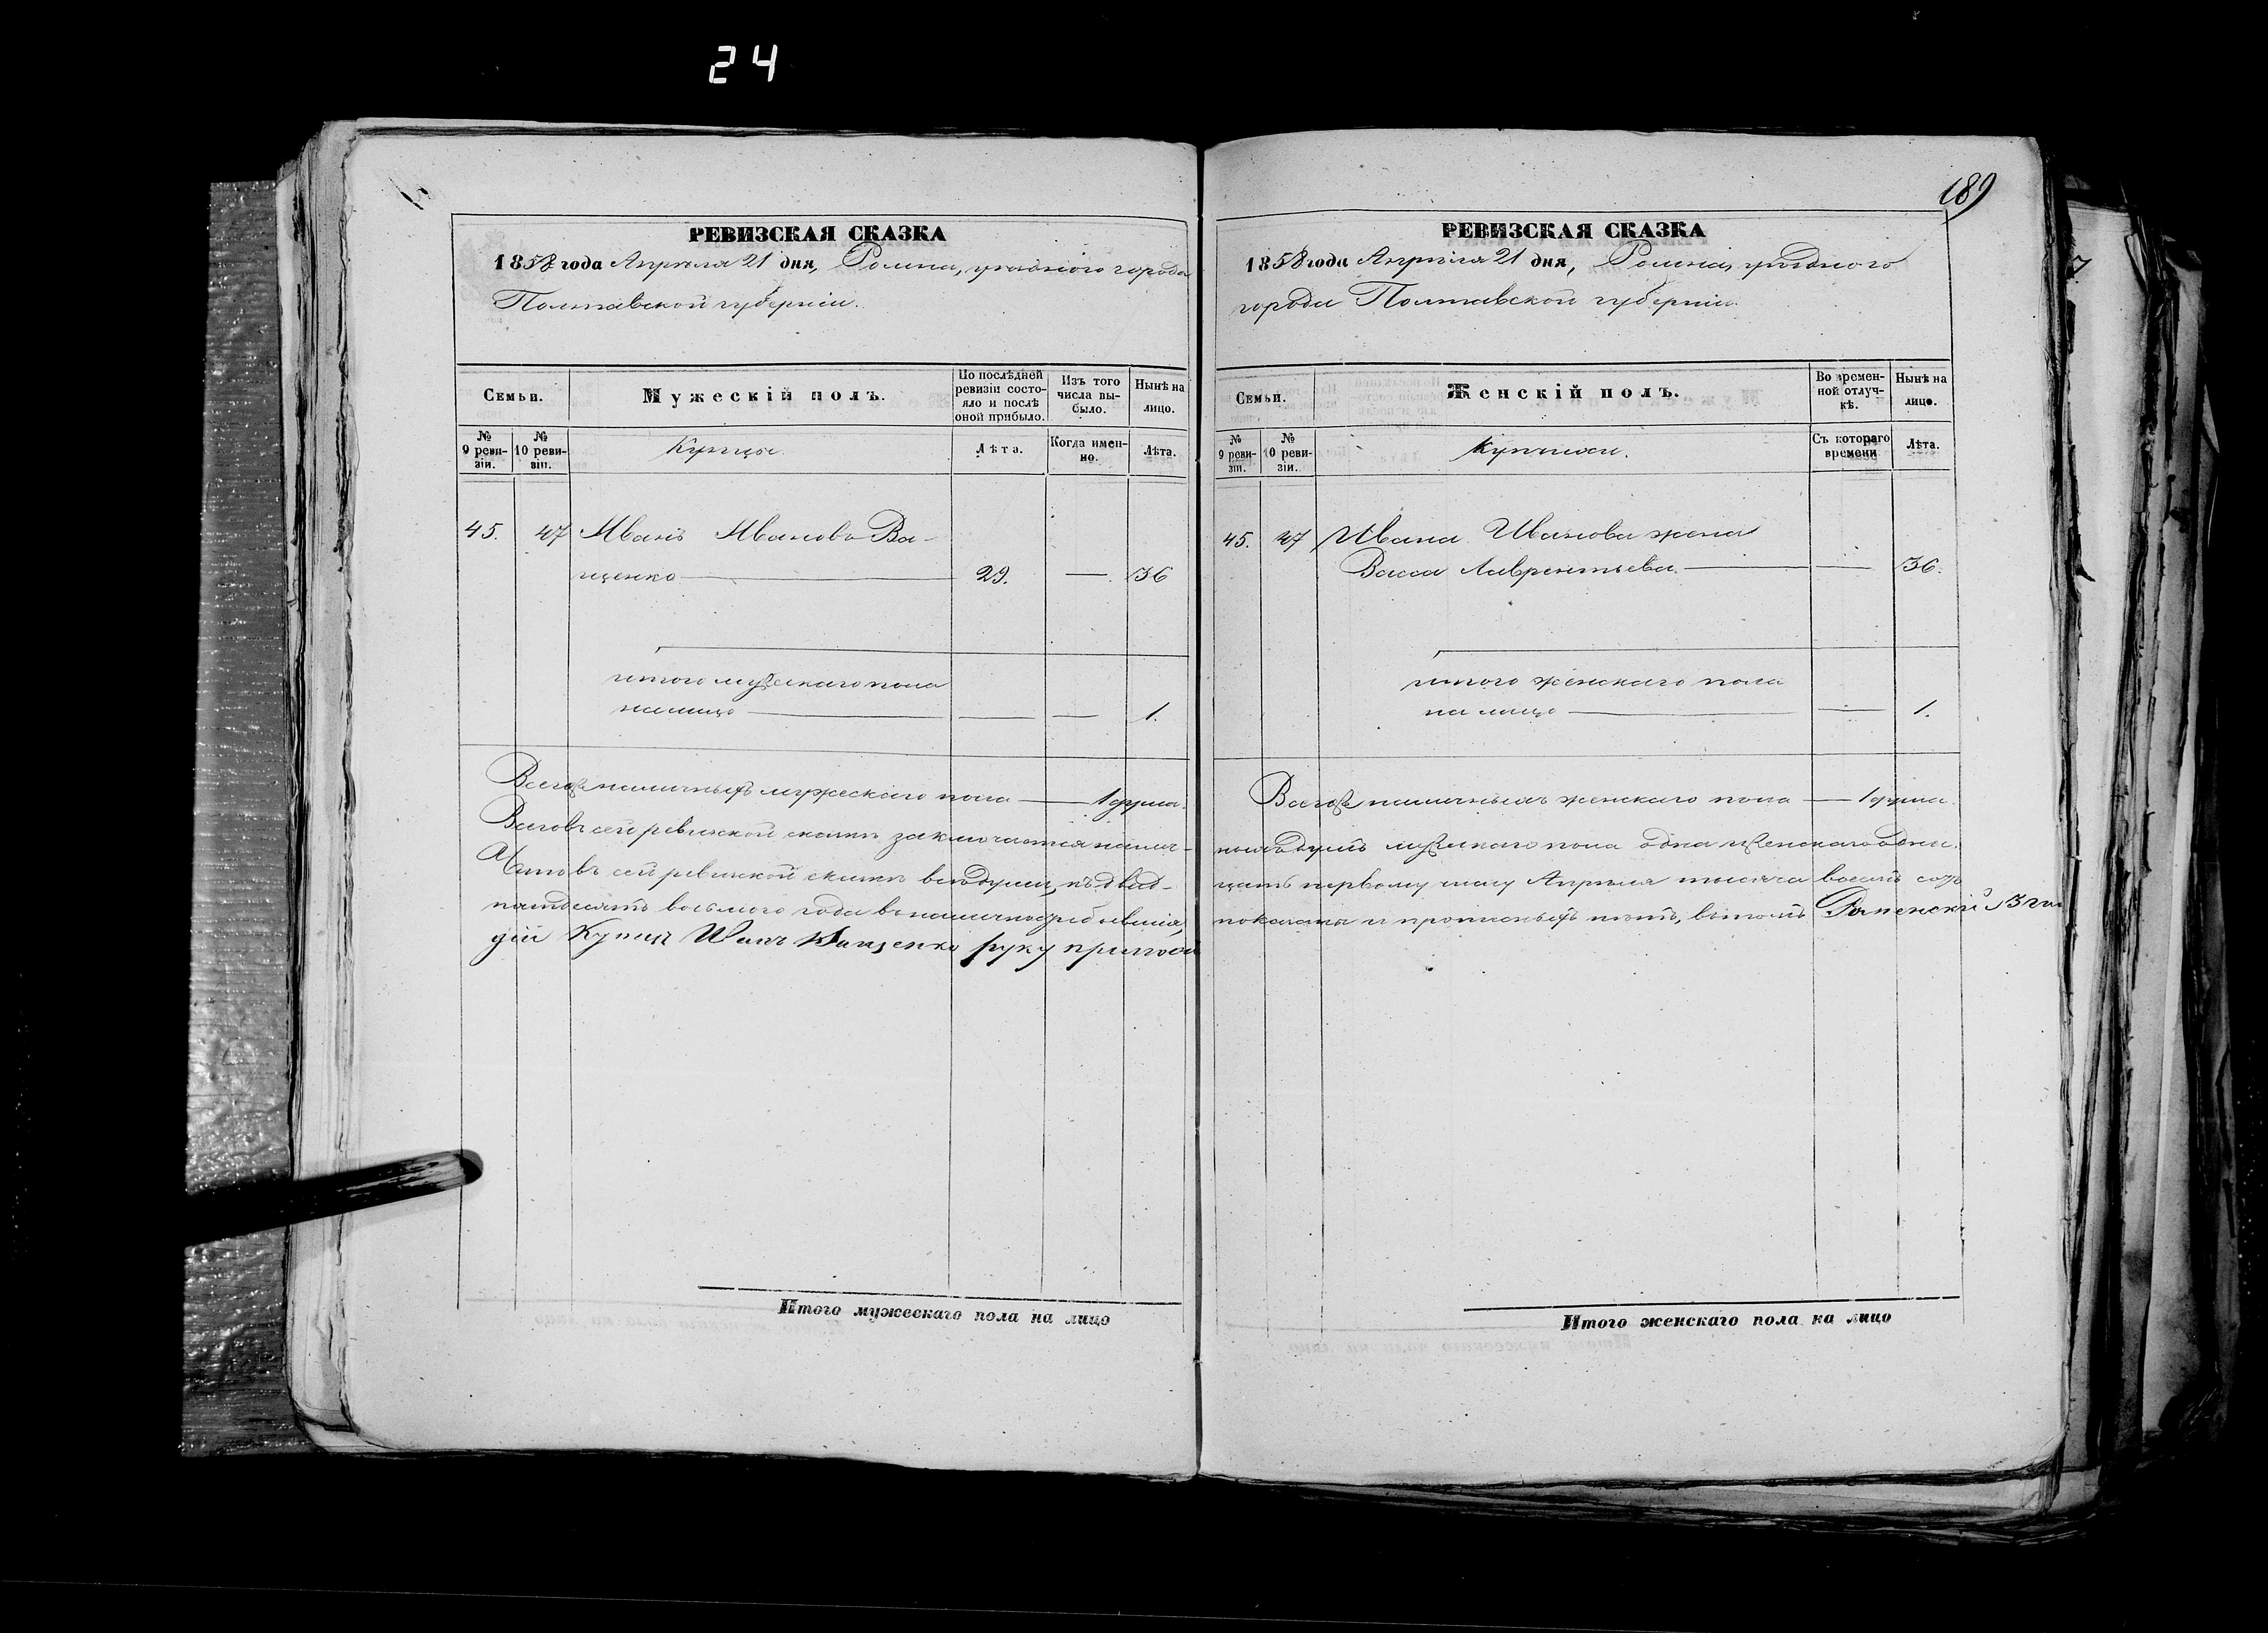 24
189
РЕВИЗСКАЯ СКАЗКА
1858 года Апреля 21 дня, Ромна, уезднаго города
Полтавской губернiи.
Семьи.
Мужескiй полъ.
По послѣдней ревизiи состояло и послѣ оной прибыло.
Изъ того числа выбыло.
Нынѣ на лицо.
№ 9 ревизiи.
№ 10 ревизiи.
Купцы.
Лѣта.
Когда именно.
Лѣта.
45. 47 Иванъ Ивановъ Ва-
щенко 29. — 36
итого мужескаго пола
налицо — — 1.
Всего наличныхъ мужескаго пола — 1 душа.
Всего въ сей ревизской сказкѣ заключается налич-
Что въ сей ревизской сказкѣ все души, къ двад-
пятьдесятъ восьмого года въ наличности
Купец Иван Ващенко руку приложил
Итого мужескаго пола на лицо
РЕВИЗСКАЯ СКАЗКА
1858 года Апреля 21 дня, Ромна, уезднаго
города Полтавской губернiи.
Семьи.
Женскiй полъ.
Во временной отлучкѣ.
Нынѣ на лицо.
№ 9 ревизiи.
№ 10 ревизiи.
Купчихи.
Съ котораго времени
Лѣта.
45. 47 Ивана Иванова жена
Васса Лаврентьева. — 36.
итого женскаго пола
на лицо — 1.
Всего наличныхъ женскаго пола — 1 душа.
ныхъ душъ мужскаго пола одна и женскаго одна.
цать первому числу Апреля тысяча восемь сотъ
показаны и прописныхъ нѣтъ, въ томъ Роменский 3
Итого женскаго пола на лицо